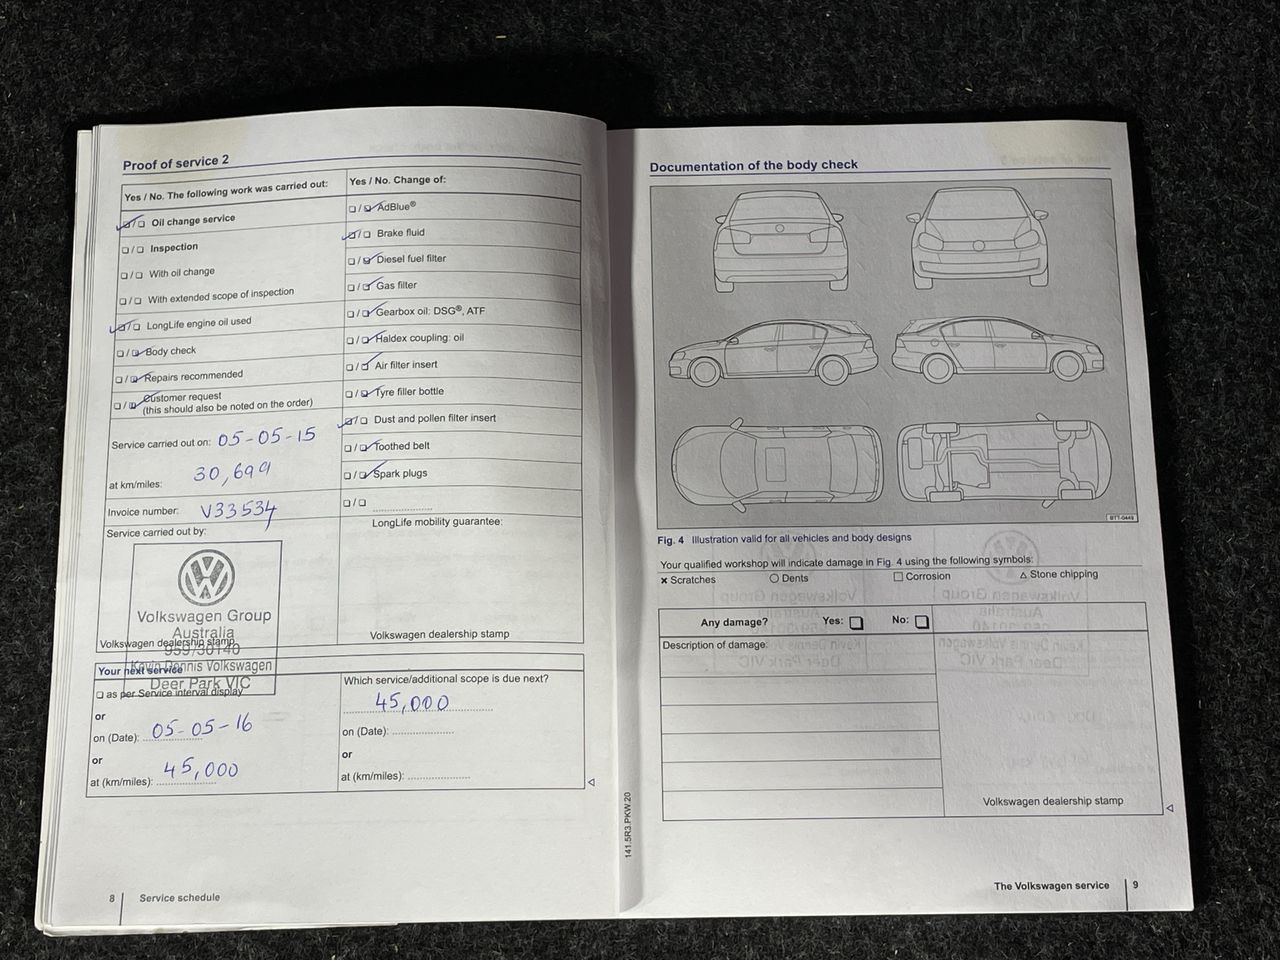 Proof of service 2
Yes / No. The following work was carried out:
☑ / ☐ Oil change service
☐ / ☐ Inspection
☐ / ☐ With oil change
☐ / ☐ With extended scope of inspection
☑ / ☐ LongLife engine oil used
☐ / ☑ Body check
☐ / ☑ Repairs recommended
☐ / ☑ Customer request
(this should also be noted on the order)
Service carried out on: 05-05-15
at km/miles: 30,699
Invoice number: V33534
Service carried out by:
Volkswagen Group
Australia
959/30140
Kevin Dennis Volkswagen
Deer Park VIC
Volkswagen dealership stamp
Yes / No. Change of:
☐ / ☑ AdBlue®
☑ / ☐ Brake fluid
☐ / ☑ Diesel fuel filter
☐ / ☑ Gas filter
☐ / ☑ Gearbox oil: DSG®, ATF
☐ / ☑ Haldex coupling: oil
☐ / ☑ Air filter insert
☐ / ☑ Tyre filler bottle
☑ / ☐ Dust and pollen filter insert
☐ / ☑ Toothed belt
☐ / ☑ Spark plugs
☐ / ☐ ....................
LongLife mobility guarantee:
Volkswagen dealership stamp
Your next service
☐ as per Service interval display
or
on (Date): 05-05-16
or
at (km/miles): 45,000
Which service/additional scope is due next?
45,000
on (Date): ....................
or
at (km/miles): ....................
8 Service schedule
141.5R3.PKW.20
Documentation of the body check
BTT-0449
Fig. 4 Illustration valid for all vehicles and body designs
Your qualified workshop will indicate damage in Fig. 4 using the following symbols:
× Scratches ○ Dents □ Corrosion △ Stone chipping
Any damage? Yes: ☐ No: ☐
Description of damage:
Volkswagen dealership stamp
The Volkswagen service 9